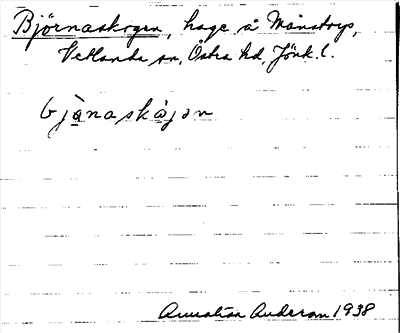 Björnaskogen, hage å Månstorp,
Vetlanda sn, Östra hd, Jönk. l.
bjä̀naskåjən
Anderson 1938